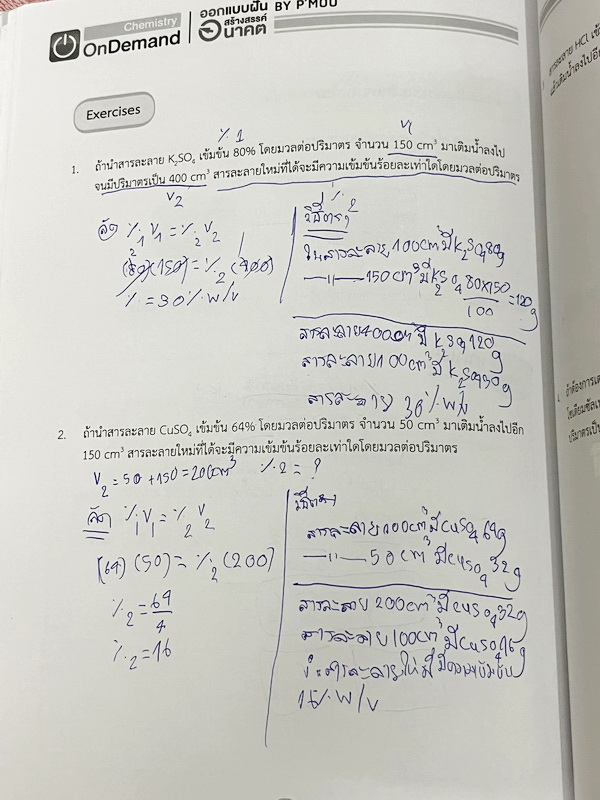 Chemistry
OnDemand
ออกแบบฝัน BY P'MOU
สร้างสรรค์
อนาคต
Exercises
%1
V1
1. ถ้านำสารละลาย K₂SO₄ เข้มข้น 80% โดยมวลต่อปริมาตร จำนวน 150 cm³ มาเติมน้ำลงไป
จนมีปริมาตรเป็น 400 cm³ สารละลายใหม่ที่ได้จะมีความเข้มข้นร้อยละเท่าใดโดยมวลต่อปริมาตร
V2
%2
ลัด %1V1 = %2V2
(80)(150) = %2(400)
% = 30% w/v
วิธีตรง
ในสารละลาย 100cm³ มี K₂SO₄ 80g
—"— 150cm³ มี K₂SO₄ 80x150
100
= 120g
สารละลาย 400cm³ มี K₂SO₄ 120g
สารละลาย 100cm³ มี K₂SO₄ 30g
สารละลาย 30% w/v
2. ถ้านำสารละลาย CuSO₄ เข้มข้น 64% โดยมวลต่อปริมาตร จำนวน 50 cm³ มาเติมน้ำลงไปอีก
150 cm³ สารละลายใหม่ที่ได้จะมีความเข้มข้นร้อยละเท่าใดโดยมวลต่อปริมาตร
V2 = 50 + 150 = 200cm³ %2 = ?
ลัด %1V1 = %2V2
(64)(50) = %2(200)
%2 = 64
4
%2 = 16
วิธีตรง
สารละลาย 100cm³ มี CuSO₄ 64g
—"— 50cm³ มี CuSO₄ 32g
สารละลาย 200cm³ มี CuSO₄ 32g
สารละลาย 100cm³ มี CuSO₄ 16g
สารละลายใหม่ มีความเข้มข้น
16% w/v
สารละลาย HCl
แล้วเติมน้ำลงไปอีก
ถ้าต้องการเต
โซเดียมซัลเ
ปริมาตรเป็น